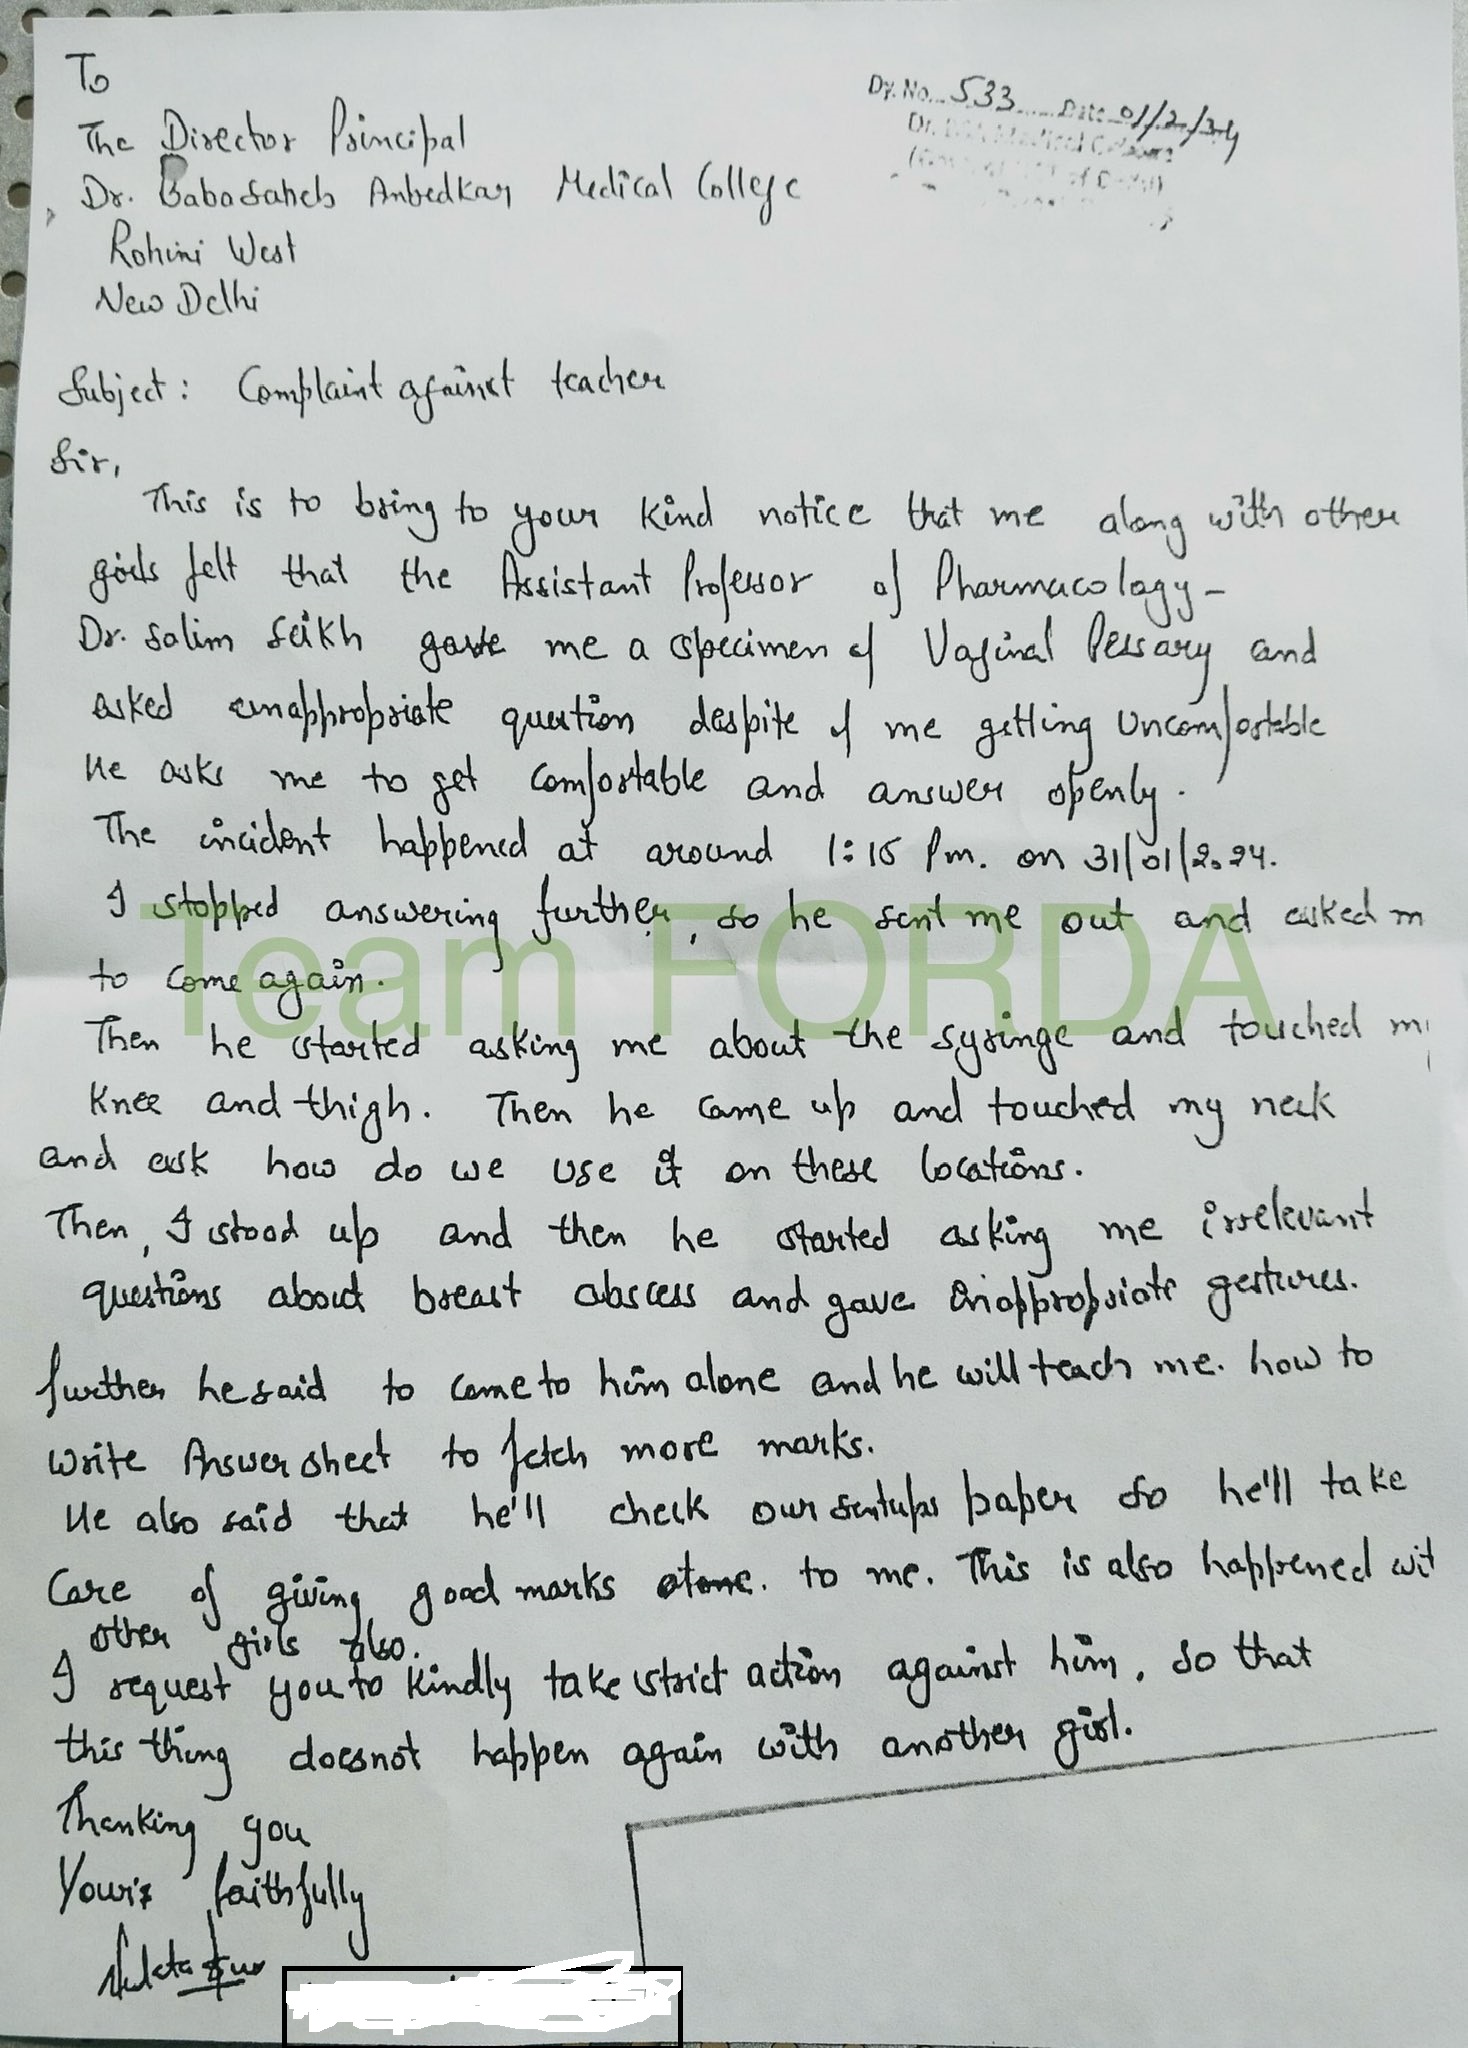 To
The Director Principal
Dr. Babasaheb Ambedkar Medical College
Rohini West
New Delhi
Dy. No. 533 Date 01/2/24
Subject: Complaint against teacher
Sir,
This is to bring to your kind notice that me along with other
girls felt that the Assistant Professor of Pharmacology -
Dr. Salim Seikh gave me a specimen of Vaginal Pessary and
asked inappropriate question despite of me getting uncomfortable
He asks me to get comfortable and answer openly.
The incident happened at around 1:15 Pm. on 31/01/2024.
I stopped answering further, so he sent me out and asked m
to come again.
Team FORDA
Then he started asking me about the syringe and touched my
knee and thigh. Then he came up and touched my neck
and ask how do we use it on these locations.
Then, I stood up and then he started asking me irrelevant
questions about breast abscess and gave inappropriate gestures.
further he said to come to him alone and he will teach me. how to
write Answer sheet to fetch more marks.
He also said that he'll check our sentups paper so he'll take
Care of giving good marks to me. This is also happened wit
other girls also.
I request you to kindly take strict action against him, so that
this thing doesnot happen again with another girl.
Thanking you
Your's faithfully